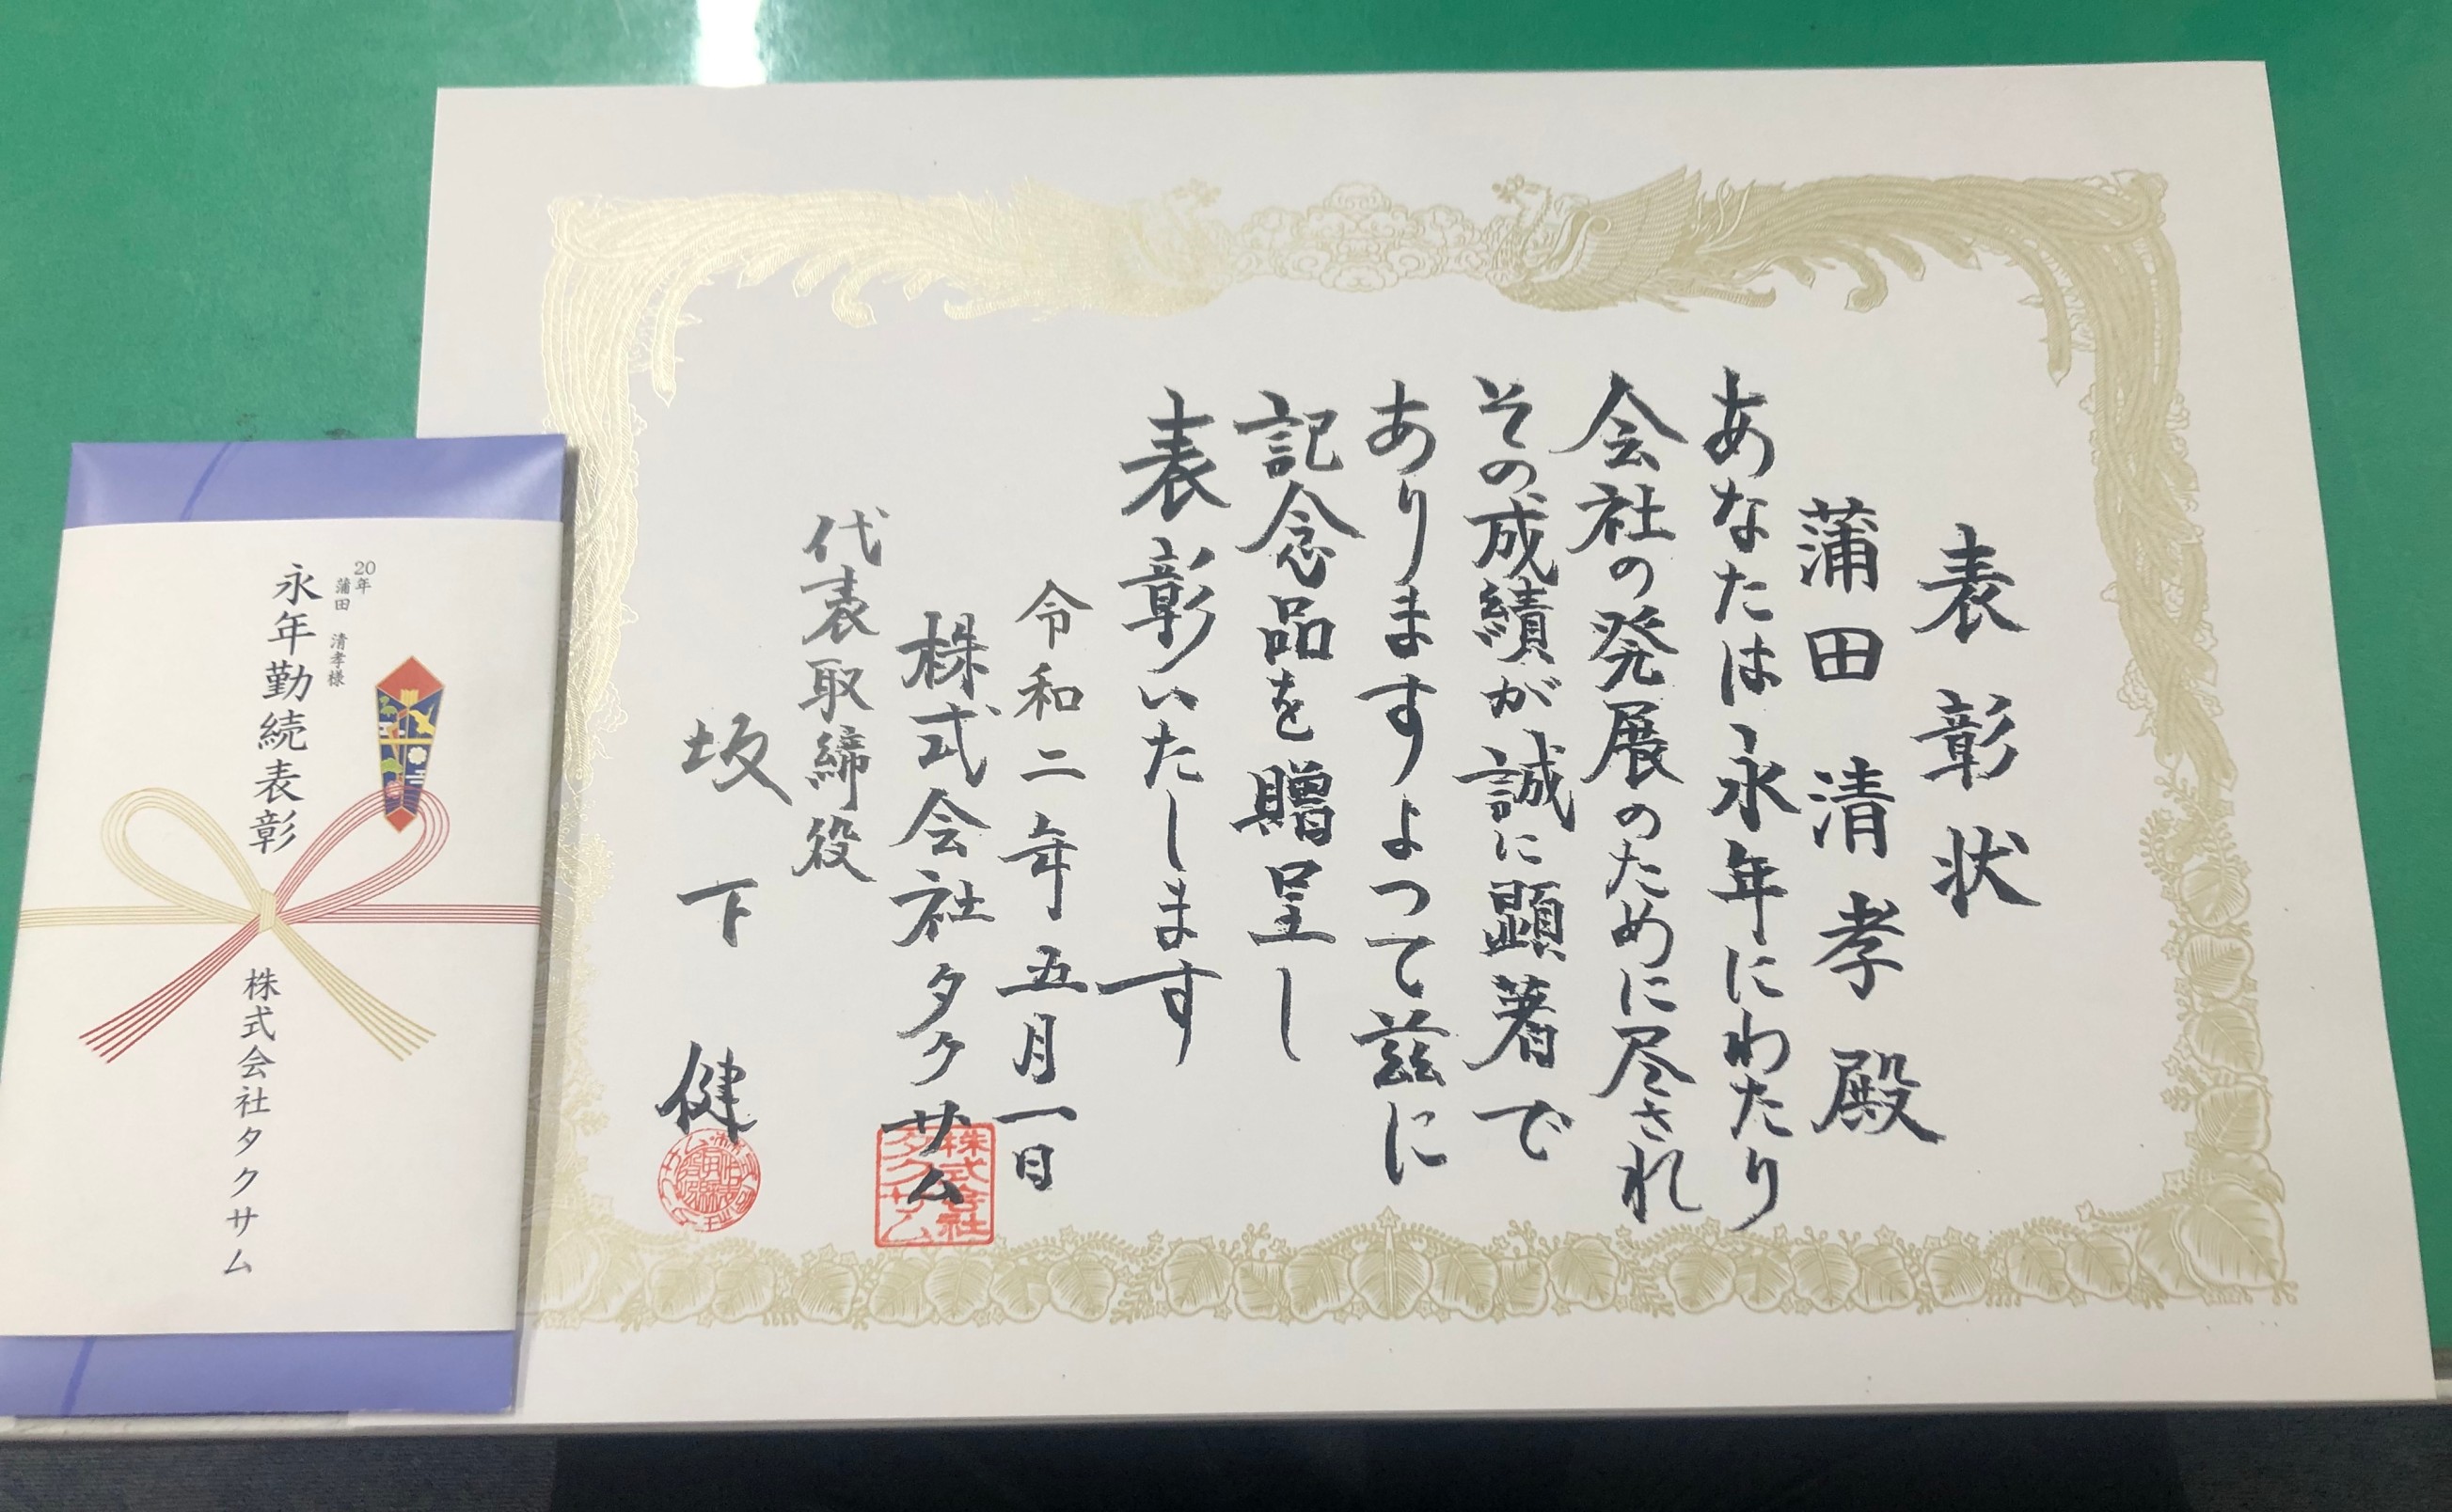 表彰状
蒲田清孝殿
あなたは永年にわたり
会社の発展のために尽され
その成績が誠に顕著で
ありますよつて茲に
記念品を贈呈し
表彰いたします
令和二年五月一日
株式会社タクサム
代表取締役
坂下健
株式会社
タクサム
20年
蒲田 清孝様
永年勤続表彰
株式会社タクサム